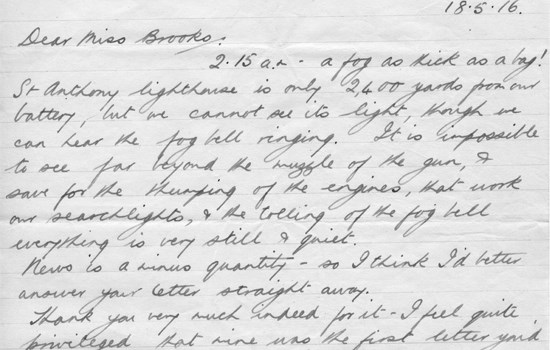 18.5.16.
Dear Miss Brooks.
2.15 a.m - a fog as thick as a bag!
St Anthony lighthouse is only 2,400 yards from our
battery, but we cannot see its light, though we
can hear the fog bell ringing. It is impossible
to see far beyond the muzzle of the gun, &
save for the thumping of the engines, that work
our searchlights, & the tolling of the fog bell
everything is very still & quiet.
News is a minus quantity - so I think I'd better
answer your letter straight away.
Thank you very much indeed for it - I feel quite
privileged that mine was the first letter you'd